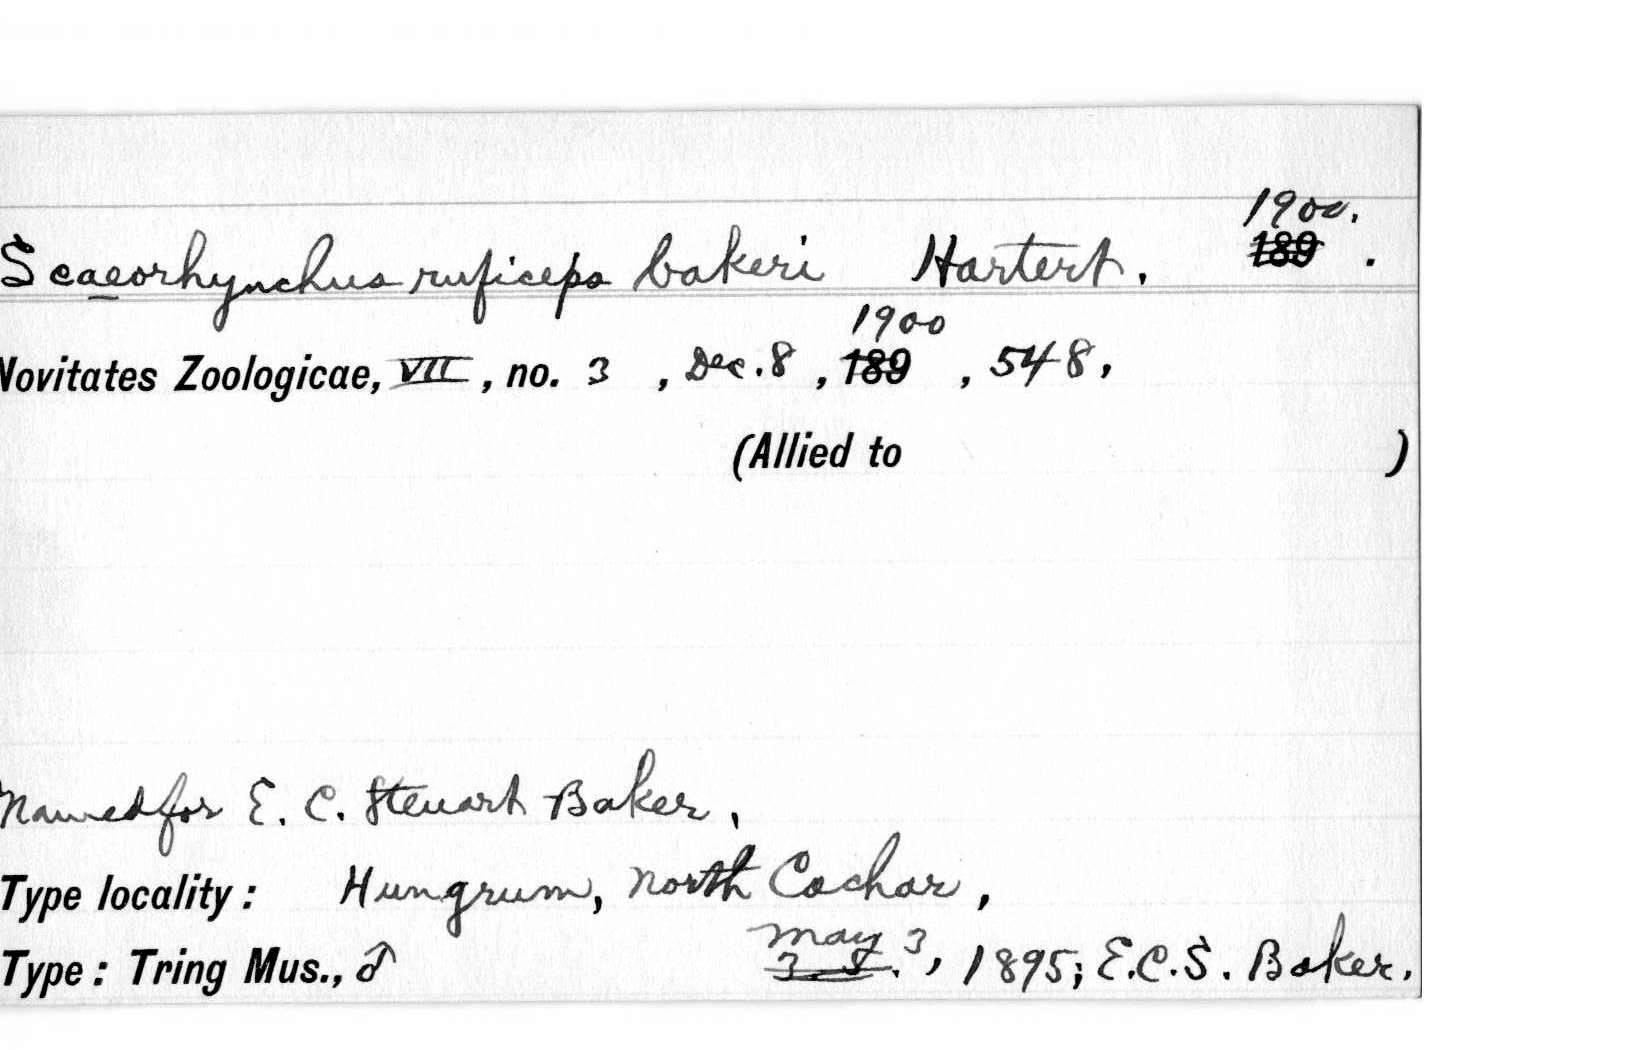 1900.
Scaeorhynchus ruficeps bakeri Hartert. 189 .
1900
Novitates Zoologicae, VII, no. 3 , Dec. 8 , 189 , 548,
(Allied to )
Named for E. C. Steuart Baker,
Type locality: Hungrum, North Cachar,
May 3
Type: Tring Mus., ♂ 3.5., 1895; E.C.S. Baker.